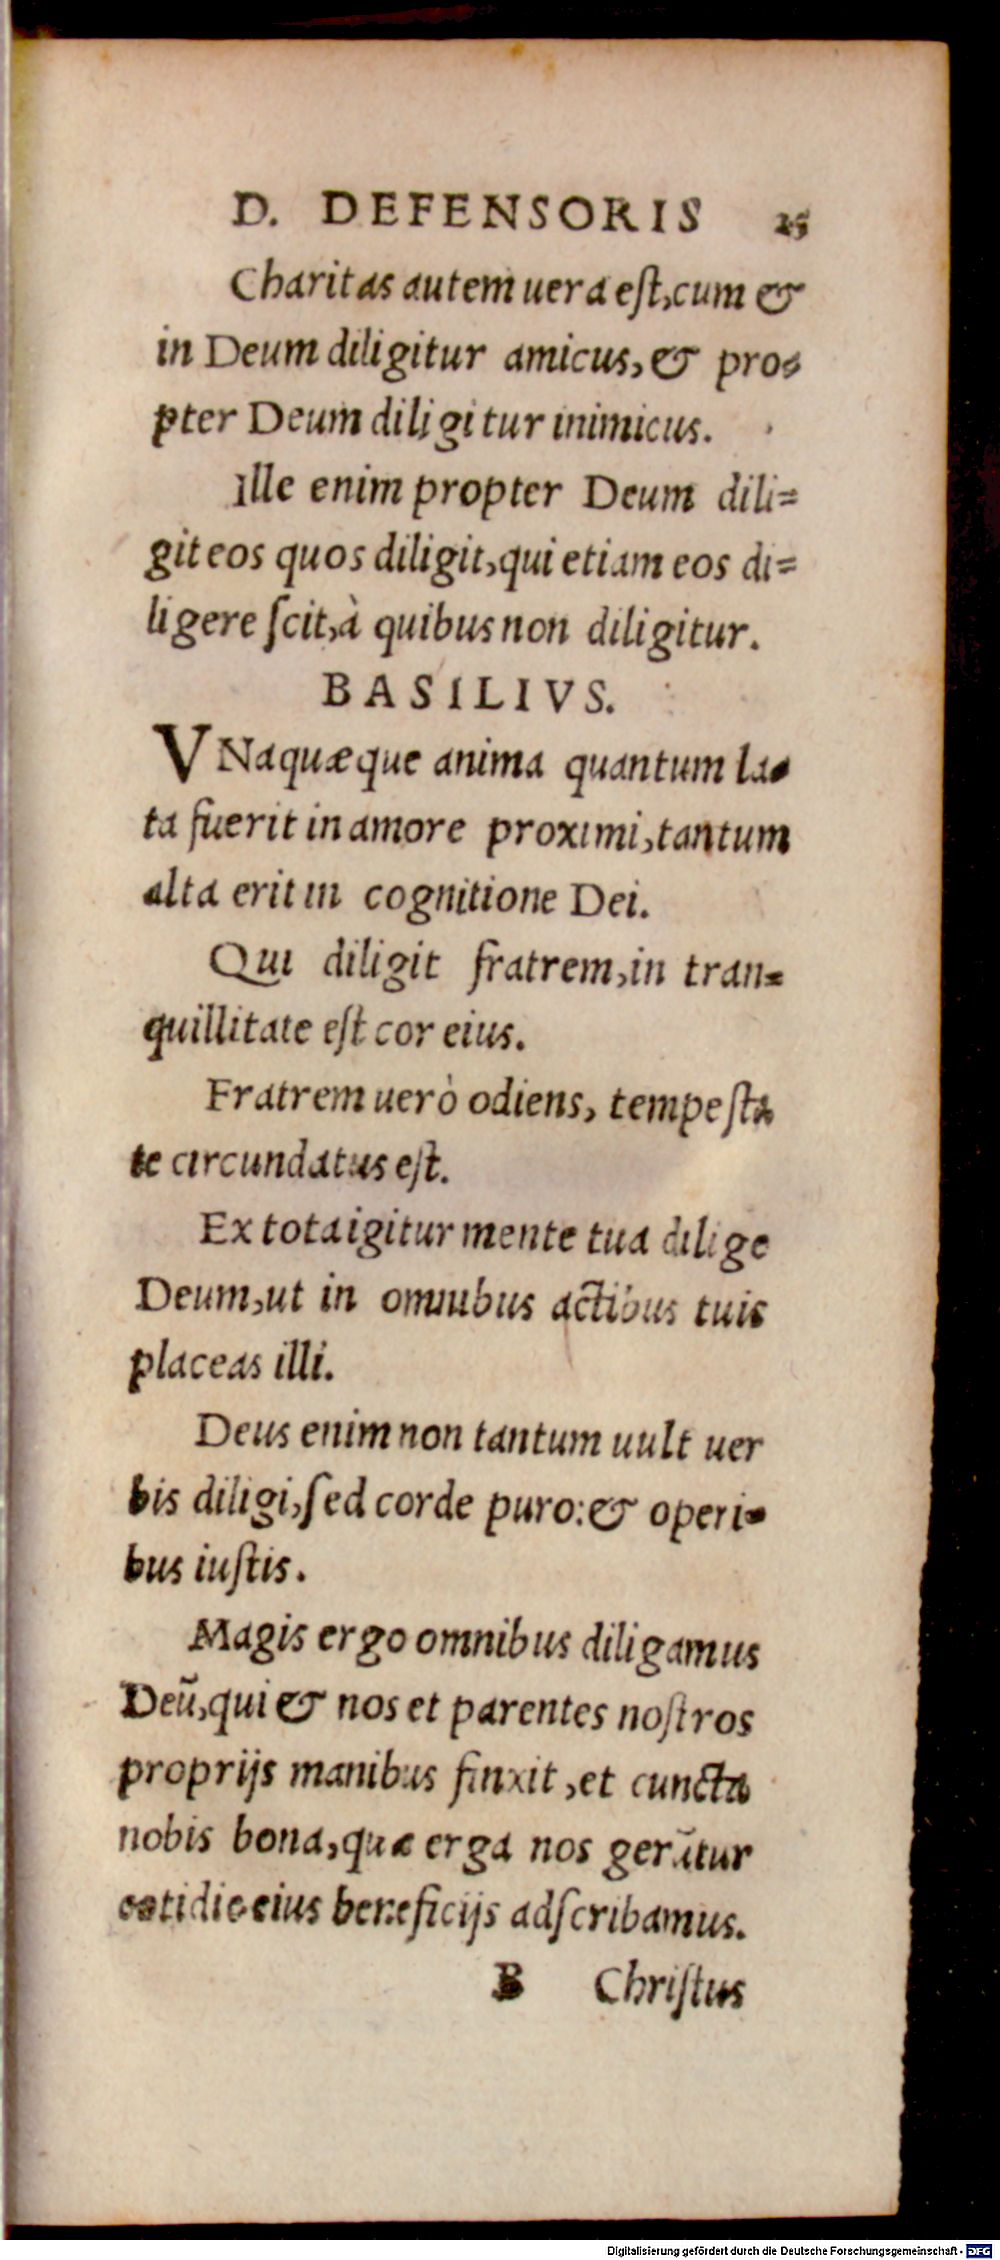 D. DEFENSORIS 25
Charitas autem uera est, cum &
in Deum diligitur amicus, & pro-
pter Deum diligitur inimicus.
Ille enim propter Deum dili=
git eos quos diligit, qui etiam eos di=
ligere scit, à quibus non diligitur.
BASILIVS.
VNaquæque anima quantum la-
ta fuerit in amore proximi, tantum
alta erit in cognitione Dei.
Qui diligit fratrem, in tran=
quillitate est cor eius.
Fratrem uerò odiens, tempesta
te circundatus est.
Ex tota igitur mente tua dilige
Deum, ut in omnibus actibus tuis
placeas illi.
Deus enim non tantum uult uer
bis diligi, sed corde puro: & operi-
bus iustis.
Magis ergo omnibus diligamus
Deũ, qui & nos et parentes nostros
proprijs manibus finxit, et cuncta
nobis bona, quæ erga nos gerũtur
cotidie eius beneficijs adscribamus.
B Christus
Digitalisierung gefördert durch die Deutsche Forschungsgemeinschaft - DFG